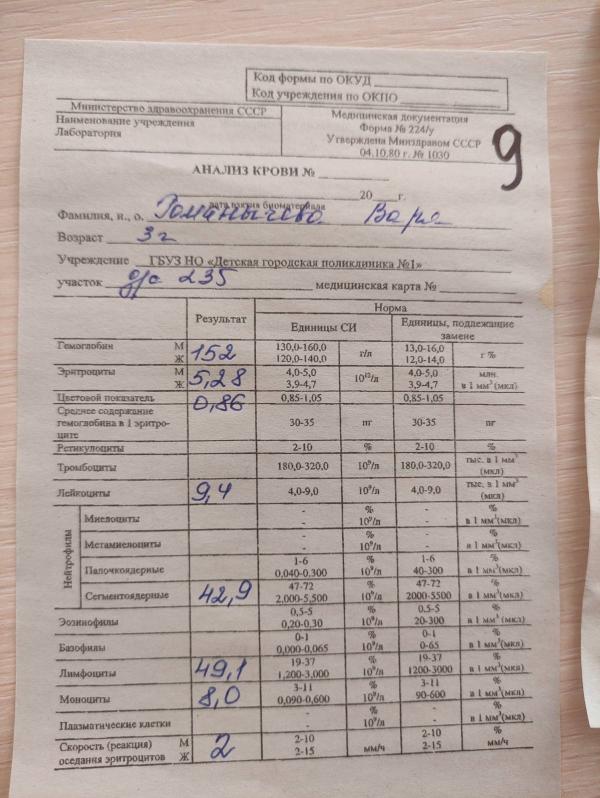 Код формы по ОКУД
Код учреждения по ОКПО
Министерство здравоохранения СССР
Наименование учреждения
Лаборатория
Медицинская документация
Форма № 224/у
Утверждена Минздравом СССР
04.10.80 г. № 1030
9
АНАЛИЗ КРОВИ №
20 г.
дата взятия биоматериала
Фамилия, и., о. Романычева Варя
Возраст 3 г
Учреждение ГБУЗ НО «Детская городская поликлиника №1»
участок д/с 235 медицинская карта №
Результат Норма
Единицы СИ Единицы, подлежащие замене
Гемоглобин М Ж 152 130,0-160,0 120,0-140,0 г/л 13,0-16,0 12,0-14,0 г %
Эритроциты М Ж 5,28 4,0-5,0 3,9-4,7 10¹²/л 4,0-5,0 3,9-4,7 млн. в 1 мм³ (мкл)
Цветовой показатель 0,86 0,85-1,05 0,85-1,05
Среднее содержание гемоглобина в 1 эритроците 30-35 пг 30-35 пг
Ретикулоциты 2-10 % 2-10 %
Тромбоциты 180,0-320,0 10⁹/л 180,0-320,0 тыс. в 1 мм³ (мкл)
Лейкоциты 9,4 4,0-9,0 10⁹/л 4,0-9,0 тыс. в 1 мм³ (мкл)
Нейтрофилы
Миелоциты - - % 10⁹/л - - % в 1 мм³(мкл)
Метамиелоциты - - % 10⁹/л - - % в 1 мм³(мкл)
Палочкоядерные 1-6 0,040-0,300 % 10⁹/л 1-6 40-300 % в 1 мм³(мкл)
Сегментоядерные 42,9 47-72 2,000-5,500 % 10⁹/л 47-72 2000-5500 % в 1 мм³(мкл)
Эозинофилы 0,5-5 0,20-0,30 % 10⁹/л 0,5-5 20-300 % в 1 мм³(мкл)
Базофилы 0-1 0,000-0,065 % 10⁹/л 0-1 0-65 % в 1 мм³(мкл)
Лимфоциты 49,1 19-37 1,200-3,000 % 10⁹/л 19-37 1200-3000 % в 1 мм³(мкл)
Моноциты 8,0 3-11 0,090-0,600 % 10⁹/л 3-11 90-600 % в 1 мм³(мкл)
Плазматические клетки - - % 10⁹/л - - % в 1 мм³(мкл)
Скорость (реакция) оседания эритроцитов М Ж 2 2-10 2-15 мм/ч 2-10 2-15 мм/ч